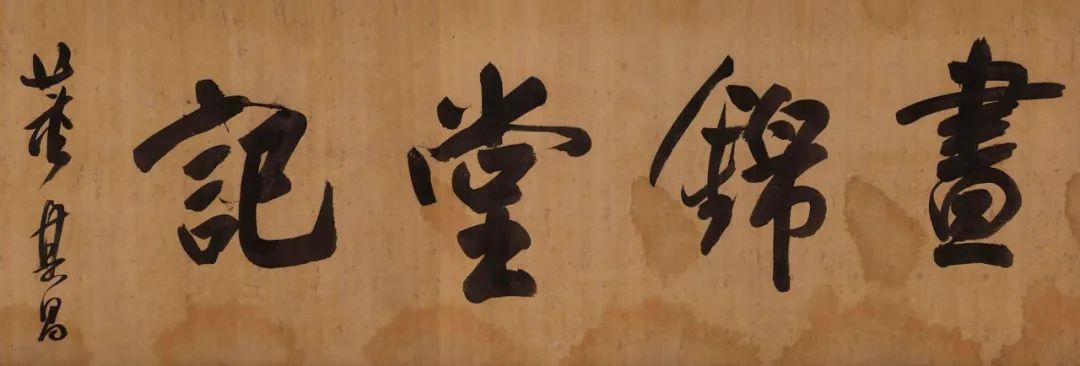 晝錦堂記
董其昌